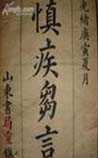 光緒庚寅夏月
慎疾芻言
山東書局重鐫